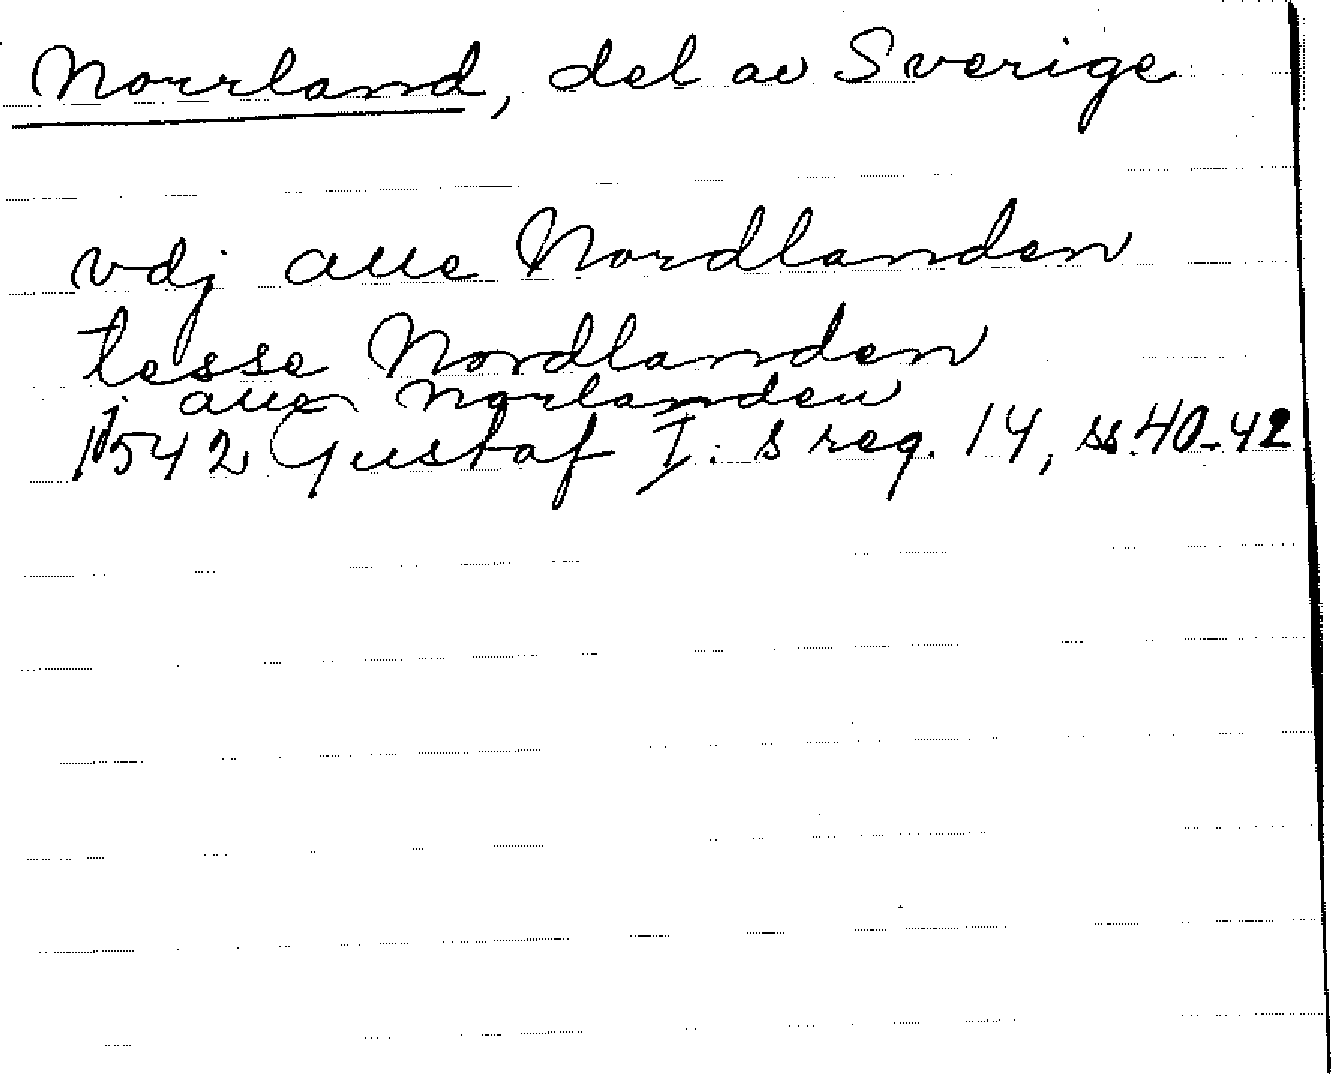 Norrland, del av Sverige
vdj alle Nordlanden
tesse Nordlanden
alle Norlanden
1542 Gustaf I:s reg. 14, ss 40-42